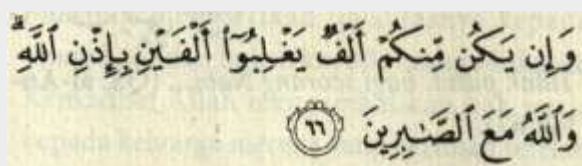 وَإِن يَكُن مِّنكُمْ أَلْفٌ يَغْلِبُوٓا۟ أَلْفَيْنِ بِإِذْنِ ٱللَّهِ ۗ
وَٱللَّهُ مَعَ ٱلصَّـٰبِرِينَ ٦٦